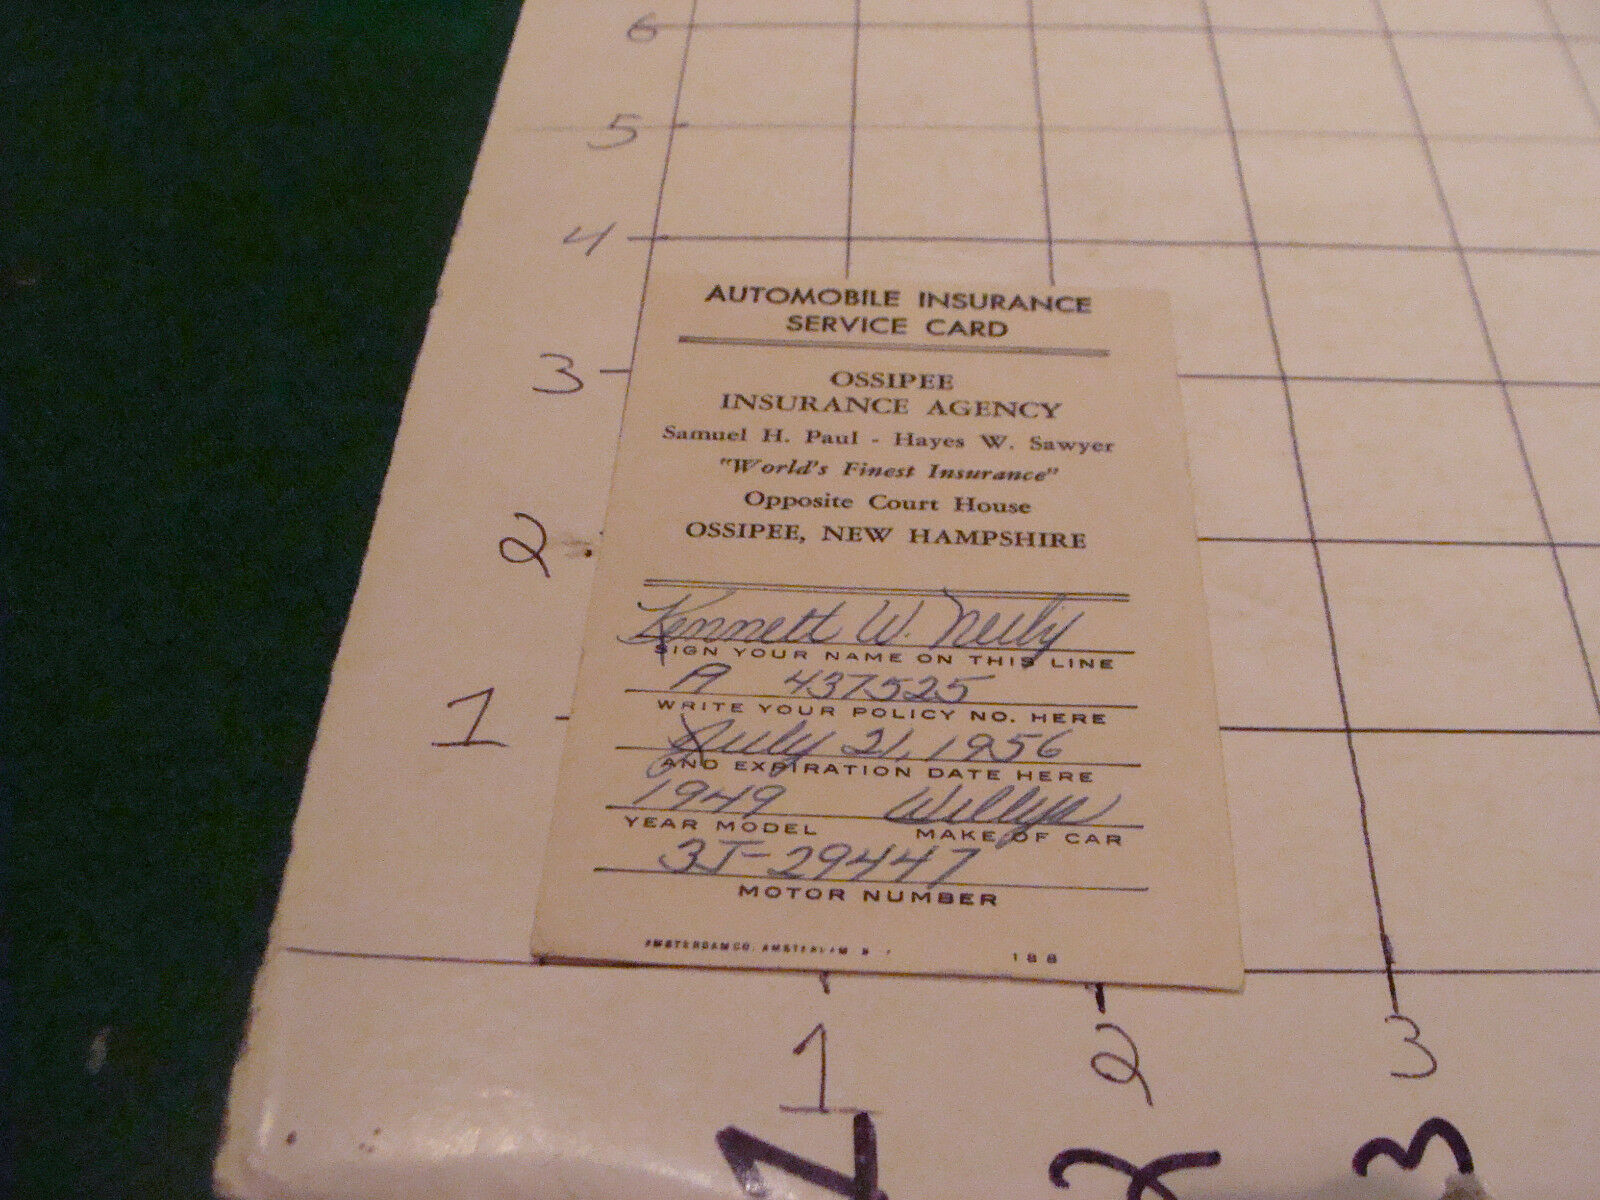 6
5
4
3
2
1
AUTOMOBILE INSURANCE
SERVICE CARD
OSSIPEE
INSURANCE AGENCY
Samuel H. Paul - Hayes W. Sawyer
"World's Finest Insurance"
Opposite Court House
OSSIPEE, NEW HAMPSHIRE
Kennett W. Neily
SIGN YOUR NAME ON THIS LINE
A 437525
WRITE YOUR POLICY NO. HERE
July 21, 1956
AND EXPIRATION DATE HERE
1949 Willys
YEAR MODEL MAKE OF CAR
3J-29447
MOTOR NUMBER
AMSTERDAM CO. AMSTERDAM N
188
1 2 3
1 2 3